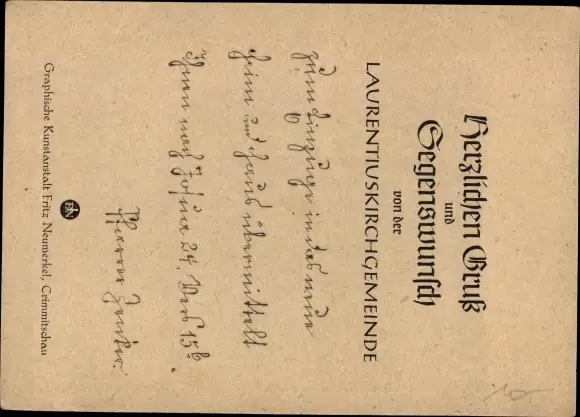 Herzlichen Gruß
und
Segenswunsch
von der
LAURENTIUSKIRCHGEMEINDE
zum Einzuge in das neue
Heim und Haus übermittelt
Ihnen nach Josua 24. Vers 15b.
Pfarrer
Graphische Kunstanstalt Fritz Neumerkel, Crimmitschau